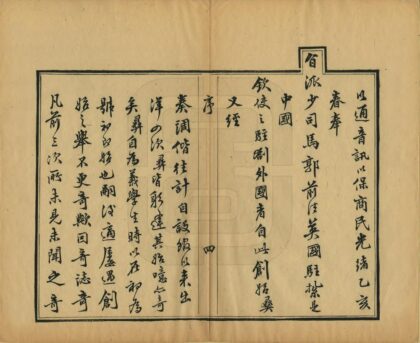 以通音訊以保商民光緒乙亥
春奉
旨派少司馬郭前往英國駐紮是
中國
欽使之駐劄外國者自此創始
又經
序 四
奏調偕往計自設館以來出
洋四次彝皆躬逢其始噫亦奇
矣彝自為義學生時以在初為
號初即始也嗣後適屢遇創
始之舉不更奇歟因奇誌奇
凡前三次所未見未聞之奇